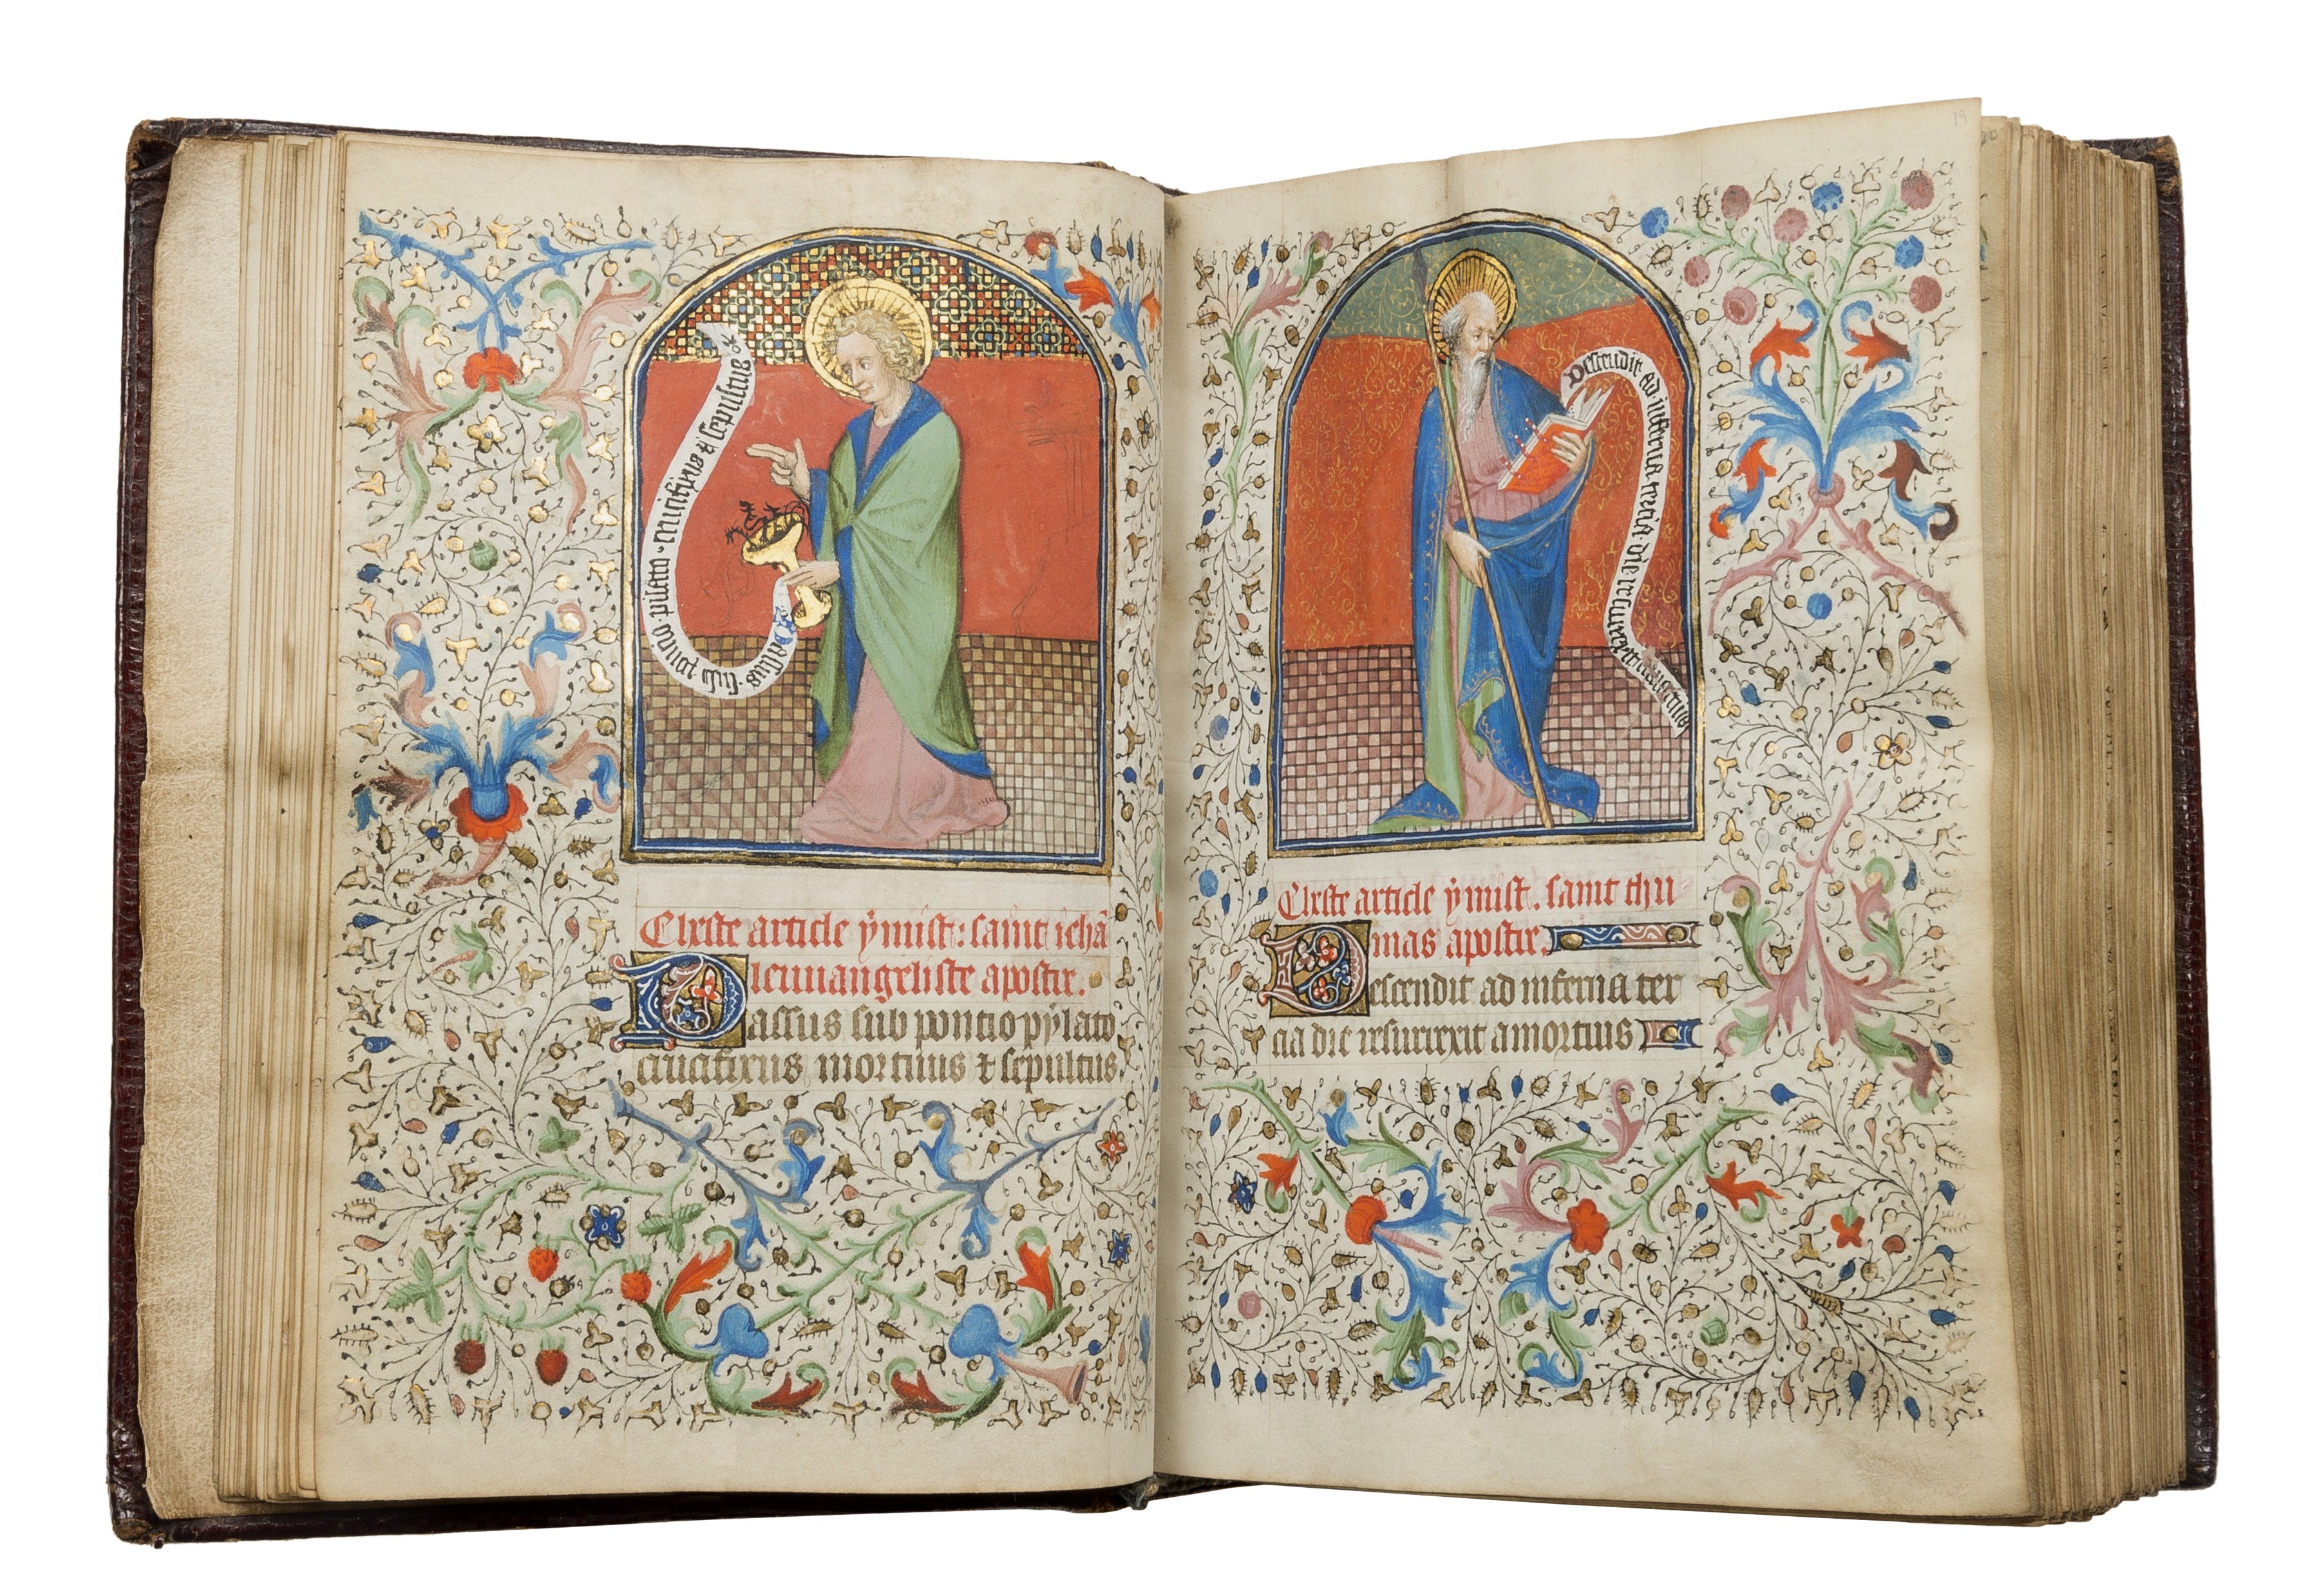 Passus . sub . poncio . pilato . crucifixus & sepultus
Cheste article y mist : saint jehā
leuuangeliste apostre.
Passus sub pontio pylato
crucifixus mortuus & sepultus
19
Descendit ad inferna tercia die resurrexit a mortuis
Cheste article y mist. saint thu
mas apostre.
Descendit ad inferna ter
cia die resurrexit a mortuis